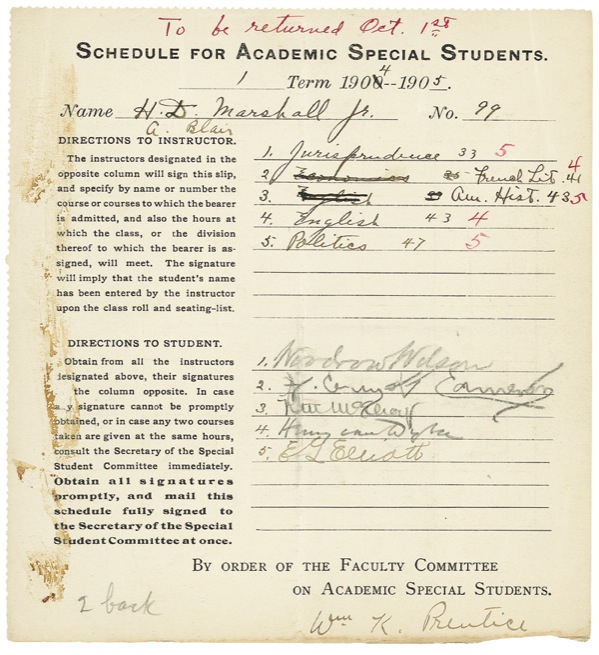 To be returned Oct. 1st
SCHEDULE FOR ACADEMIC SPECIAL STUDENTS.
1 Term 1904--1905.
Name H. D. Marshall Jr. No. 99
A. Blair
DIRECTIONS TO INSTRUCTOR.
The instructors designated in the
opposite column will sign this slip,
and specify by name or number the
course or courses to which the bearer
is admitted, and also the hours at
which the class, or the division
thereof to which the bearer is as-
signed, will meet. The signature
will imply that the student's name
has been entered by the instructor
upon the class roll and seating-list.
1. Jurisprudence 33 5
2. Economics French Lit. 41 4
3. English Am. Hist. 43 5
4. English 43 4
5. Politics 47 5
DIRECTIONS TO STUDENT.
Obtain from all the instructors
designated above, their signatures
in the column opposite. In case
any signature cannot be promptly
obtained, or in case any two courses
taken are given at the same hours,
consult the Secretary of the Special
Student Committee immediately.
Obtain all signatures
promptly, and mail this
schedule fully signed to
the Secretary of the Special
Student Committee at once.
1. Woodrow Wilson
2.
3.
4. Henry van Dyke
5. E G Elliott
BY ORDER OF THE FACULTY COMMITTEE
ON ACADEMIC SPECIAL STUDENTS.
2 back
Wm K. Prentice